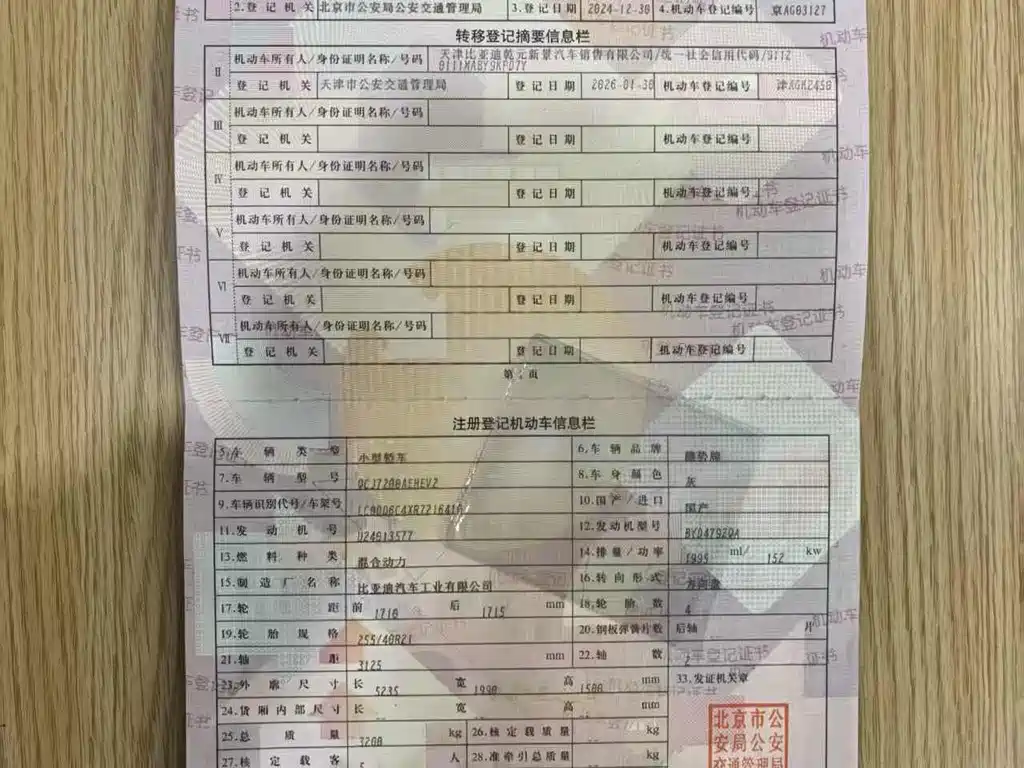 2.登记机关 北京市公安局公安交通管理局 3.登记日期 2024-12-30 4.机动车登记编号 京AG03127
转移登记摘要信息栏
Ⅱ 机动车所有人/身份证明名称/号码 天津比亚迪乾元新景汽车销售有限公司/统一社会信用代码/9112
0111MABY9KPD7Y
登记机关 天津市公安交通管理局 登记日期 2026-01-30 机动车登记编号
Ⅲ 机动车所有人/身份证明名称/号码
登记机关 登记日期 机动车登记编号
Ⅳ 机动车所有人/身份证明名称/号码
登记机关 登记日期 机动车登记编号
Ⅴ 机动车所有人/身份证明名称/号码
登记机关 登记日期 机动车登记编号
Ⅵ 机动车所有人/身份证明名称/号码
登记机关 登记日期 机动车登记编号
Ⅶ 机动车所有人/身份证明名称/号码
登记机关 登记日期 机动车登记编号
第 页
注册登记机动车信息栏
5.车辆类型 小型轿车 6.车辆品牌 腾势牌
7.车辆型号 8.车身颜色 灰
9.车辆识别代号/车架号 10.国产/进口 国产
11.发动机号 12.发动机型号 BYD479ZQA
13.燃料种类 混合动力 14.排量/功率 1995 ml/ 152 kw
15.制造厂名称 比亚迪汽车工业有限公司 16.转向形式 方向盘
17.轮距 前 1710 后 1715 mm 18.轮胎数 4
19.轮胎规格 255/40R21 20.钢板弹簧片数 后轴 片
21.轴距 3125 mm 22.轴数 2
23.外廓尺寸 长 5235 宽 1990 高 1500 mm 33.发证机关章
24.货厢内部尺寸 长 宽 高 mm
25.总质量 3200 kg 26.核定载质量 kg
27.核定载客 5 人 28.准牵引总质量 kg
北京市公
安局公安
交通管理局